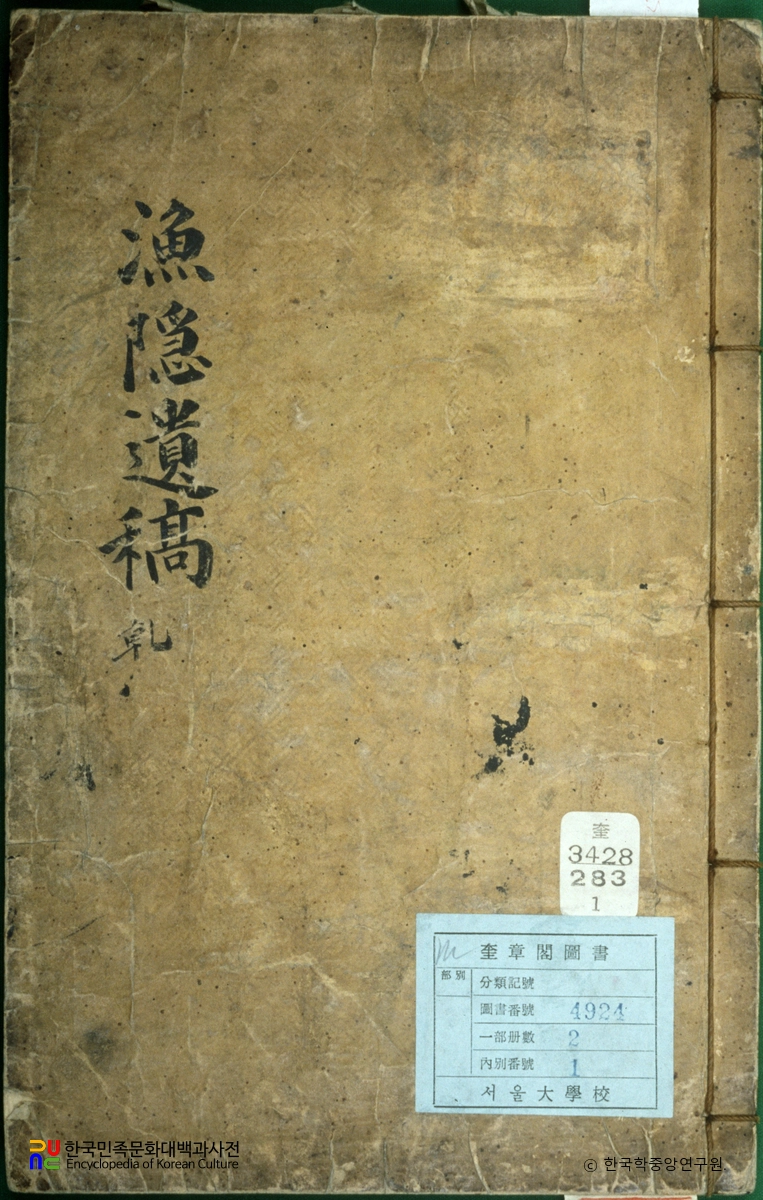 漁隠遺稿
乹
奎
3428
283
1
奎章閣圖書
部別
分類記號
圖書番號 4924
一部册數 2
內別番號 1
서울大學校
한국민족문화대백과사전
Encyclopedia of Korean Culture
© 한국학중앙연구원